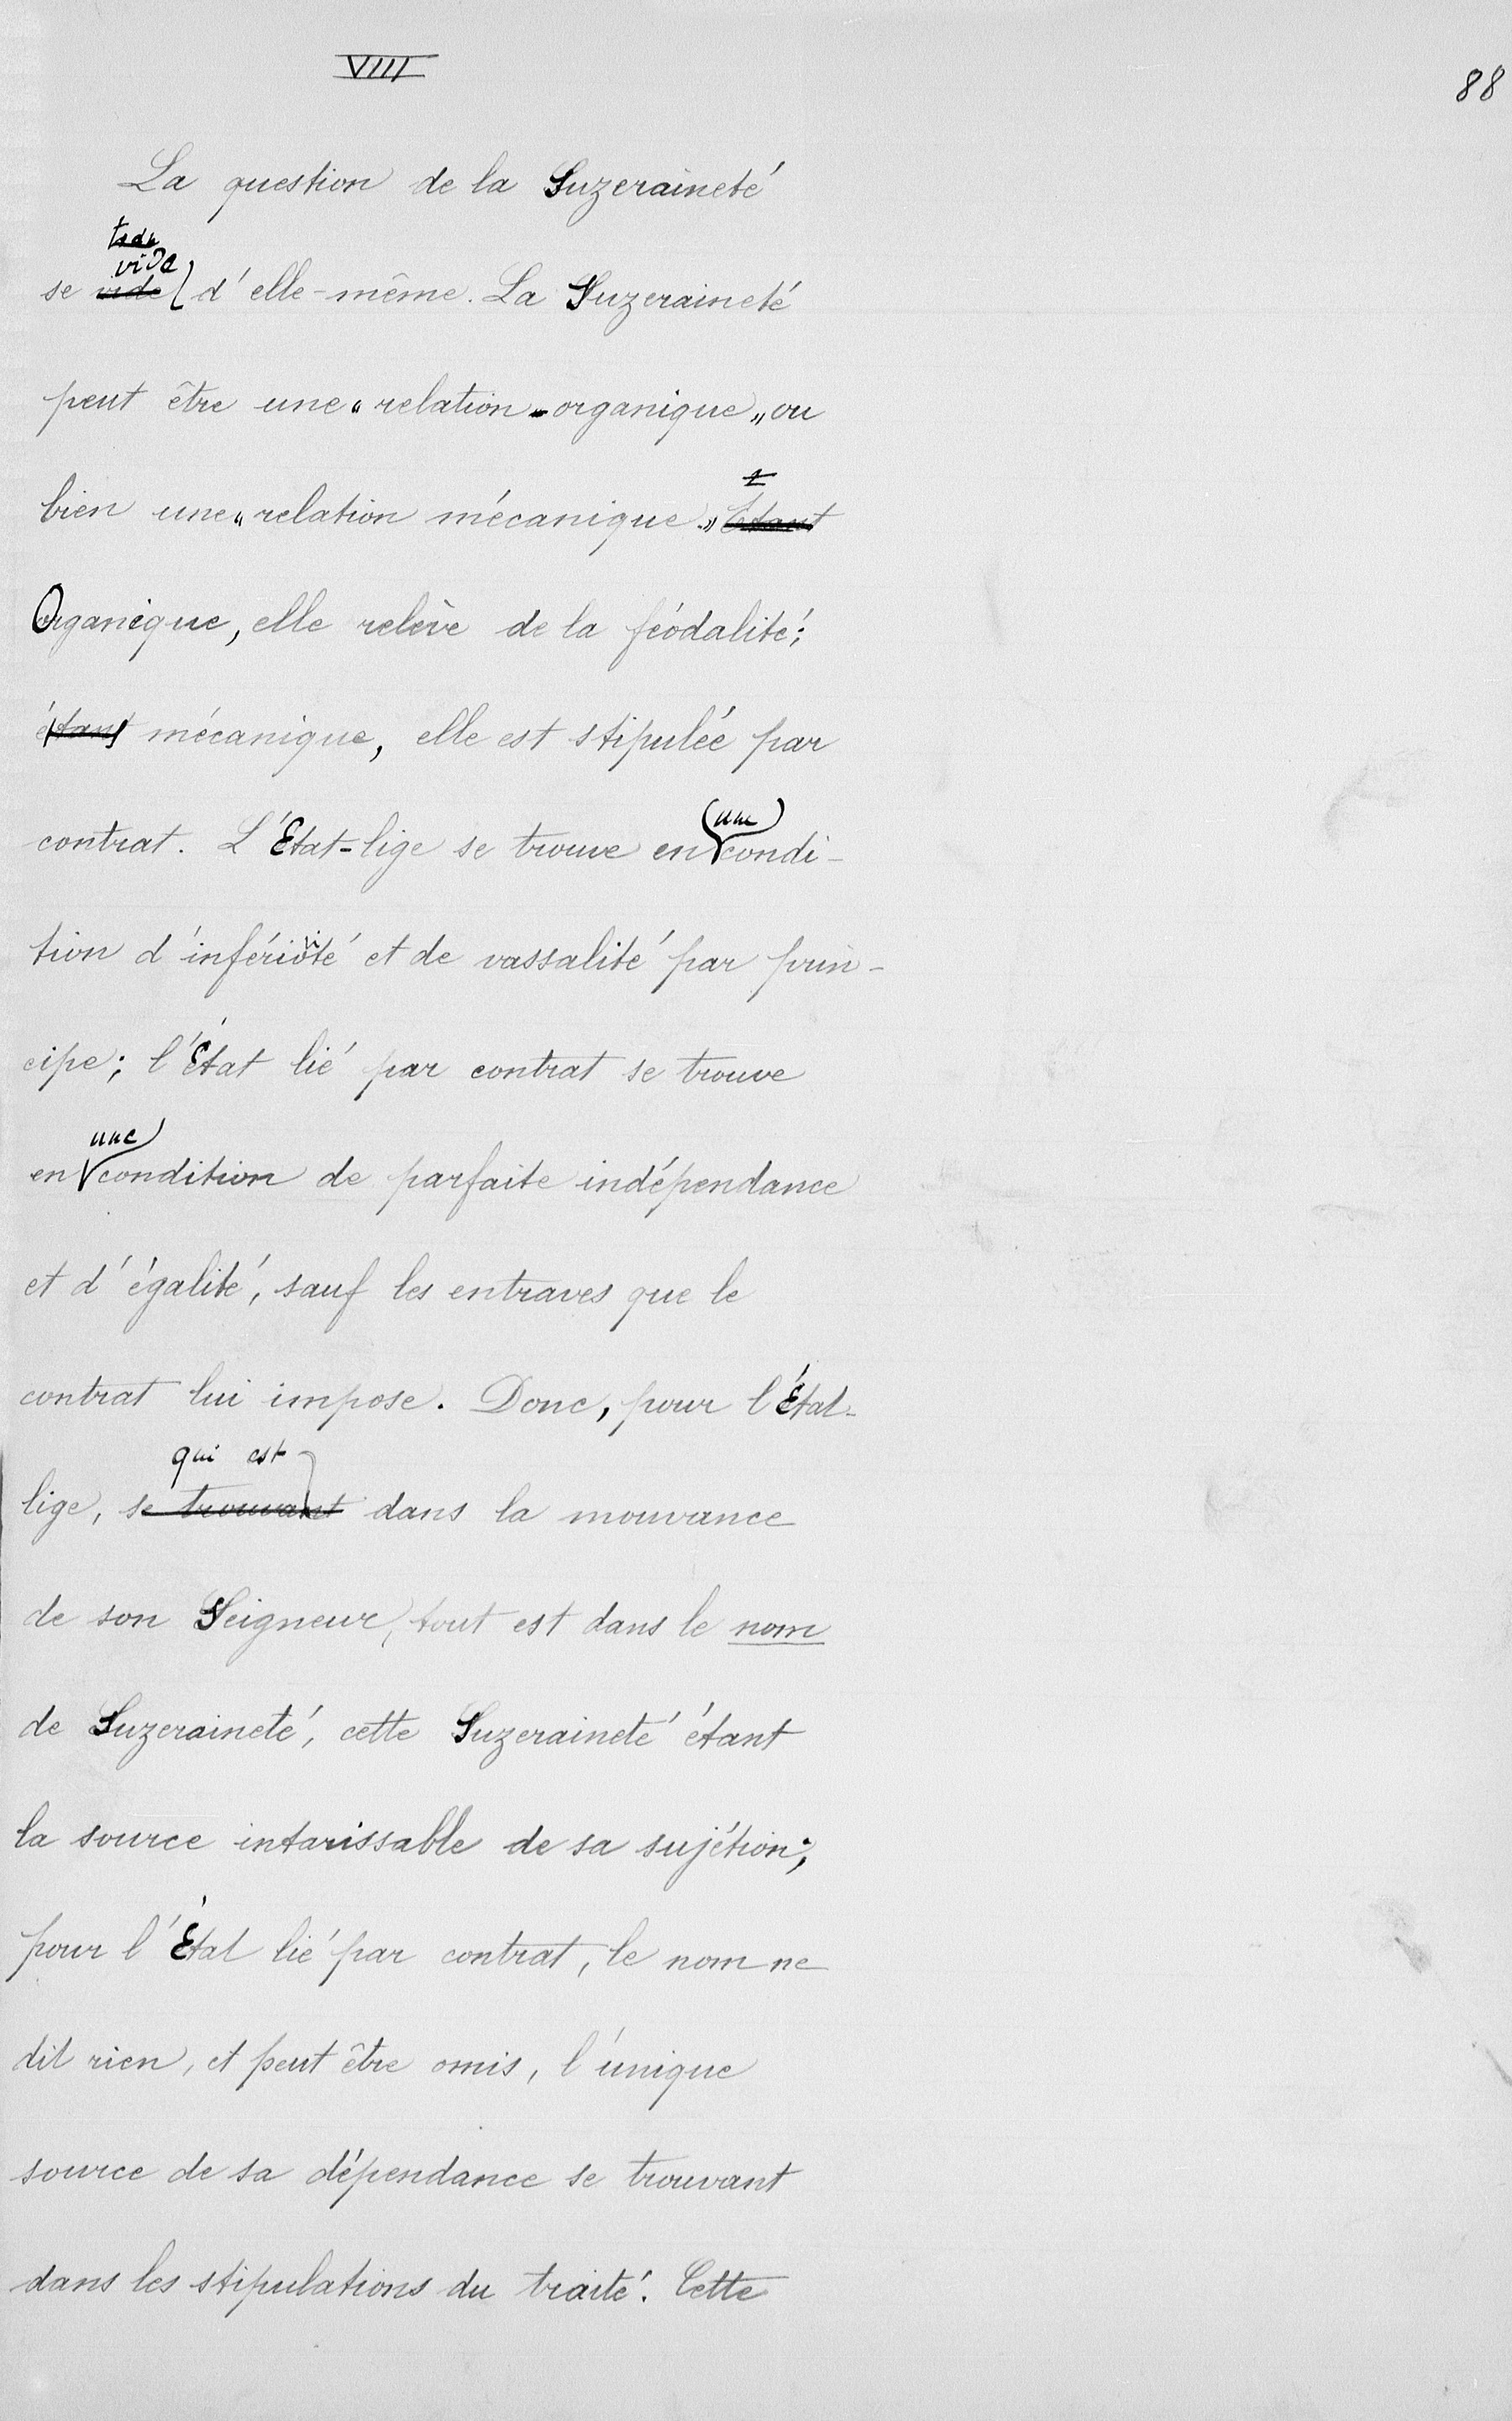 VIII
88
La question de la Suzeraineté
vide
se vide d'elle-même. La Suzeraineté
peut être une "relation organique" ou
bien une "relation mécanique." Etant
Organique, elle relève de la féodalité;
étant mécanique, elle est stipulée par
une
contrat. L'État-lige se trouve en condi-
tion d'infériorité et de vassalité par prin-
cipe; l'État lié par contrat se trouve
une
en condition de parfaite indépendance
et d'égalité, sauf les entraves que le
contrat lui impose. Donc, pour l'État-
qui est
lige, se trouvant dans la mouvance
de son Seigneur, tout est dans le nom
de Suzeraineté, cette Suzeraineté étant
la source intarissable de sa sujétion;
pour l'État lié par contrat, le nom ne
dit rien, et peut être omis, l'unique
source de sa dépendance se trouvant
dans les stipulations du traité. Cette